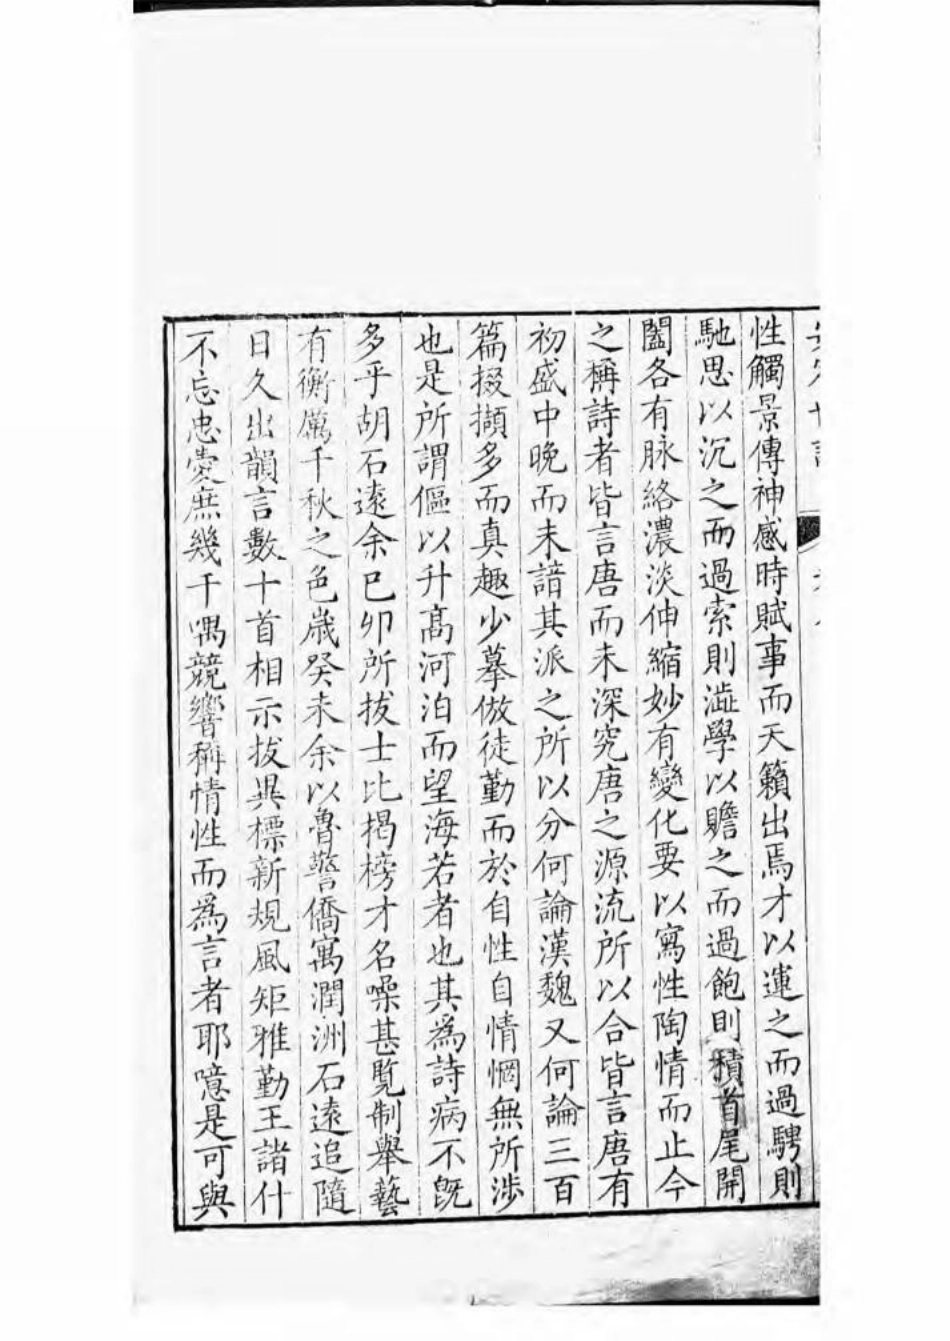 性觸景傳神感時賦事而天籟出焉才以運之而過騁則
馳思以沉之而過索則澁學以贍之而過飽則積首尾開
闔各有脉絡濃淡伸縮妙有變化要以寫性陶情而止今
之稱詩者皆言唐而未深究唐之源流所以合皆言唐有
初盛中晚而未諳其派之所以分何論漢魏又何論三百
篇掇擷多而真趣少摹倣徒勤而於自性自情惘無所涉
也是所謂傴以升髙河泊而望海若者也其爲詩病不旣
多乎胡石逺余巳卯所拔士比揭榜才名噪甚覧制舉藝
有衡厲千秋之色歳癸未余以魯警僑寓潤洲石逺追隨
日久出韻言數十首相示拔異標新規風矩雅勤王諸什
不忘忠愛庶幾千喁競響稱情性而爲言者耶噫是可與